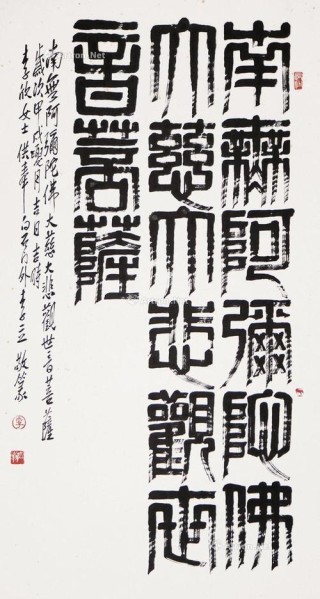 南無阿彌陀佛
大慈大悲觀世
音菩薩
南無阿彌陀佛大慈大悲觀世音菩薩
歲次甲戌夏月吉日吉時
李欣女士供奉 李立敬篆